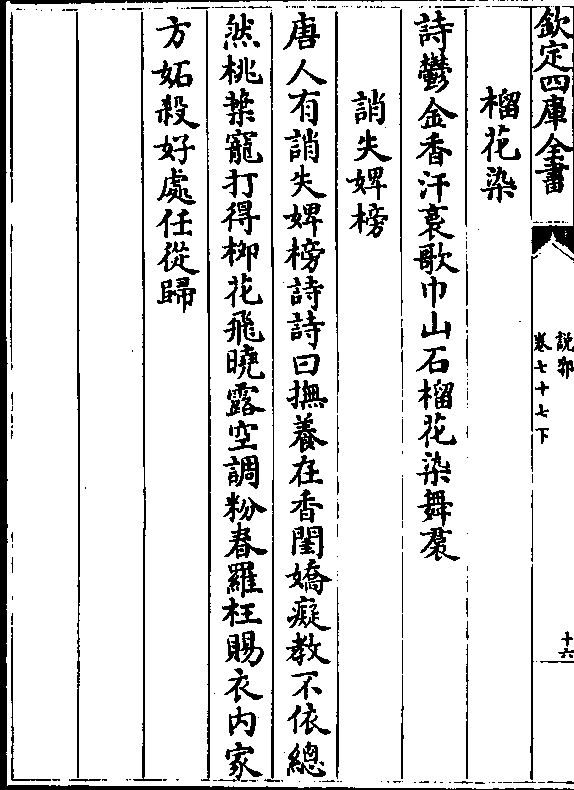 欽定四庫全書
說郛
卷七十七下
十六
榴花染
詩鬱金香汗裛歌巾山石榴花染舞裙
誚失婢榜
唐人有誚失婢榜詩詩曰撫養在香閨嬌癡教不依總
然桃葉寵打得柳花飛曉露空調粉春羅枉賜衣內家
方妬殺好處任從歸